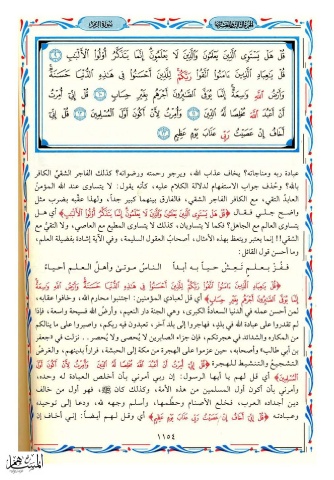 سورة الزمر
قُلْ هَلْ يَسْتَوِي الَّذِينَ يَعْلَمُونَ وَالَّذِينَ لَا يَعْلَمُونَ إِنَّمَا يَتَذَكَّرُ أُولُوا الْأَلْبَابِ
قُلْ يَاعِبَادِ الَّذِينَ ءَامَنُوا اتَّقُوا رَبَّكُمْ لِلَّذِينَ أَحْسَنُوا فِي هَذِهِ الدُّنْيَا حَسَنَةٌ
وَأَرْضُ اللَّهِ وَاسِعَةٌ إِنَّمَا يُوَفَّى الصَّابِرُونَ أَجْرَهُم بِغَيْرِ حِسَابٍ قُلْ إِنِّي أُمِرْتُ
أَنْ أَعْبُدَ اللَّهَ مُخْلِصًا لَهُ الدِّينَ وَأُمِرْتُ لِأَنْ أَكُونَ أَوَّلَ الْمُسْلِمِينَ قُلْ إِنِّي
أَخَافُ إِنْ عَصَيْتُ رَبِّي عَذَابَ يَوْمٍ عَظِيمٍ
عبادة ربه ومناجاته؟ يخاف عذاب الله، ويرجو رحمته ورضوانه؟ كذلك الفاجر الشقي الكافر
بالله؟ وحُذف جواب الاستفهام لدلالة الكلام عليه، كأنه يقول: لا يتساوى عند الله المؤمنُ
العابدُ التقي، مع الكافر الفاجر الشقي، فالفارق بينهما كبير جداً، ولهذا عقَّبه بضرب مثل
واضح جلي فقال ﴿قُلْ هَلْ يَسْتَوِي الَّذِينَ يَعْلَمُونَ وَالَّذِينَ لَا يَعْلَمُونَ إِنَّمَا يَتَذَكَّرُ أُولُوا الْأَلْبَابِ﴾ أي هل
يتساوى العالم مع الجاهل؟ فكما لا يتساويان، كذلك لا يتساوى المطيع مع العاصي، ولا التقيُّ مع
الشقي!! إنما يعتبر ويتعظ بهذه الأمثال، أصحابُ العقول السليمة، وفي الآية إشادة بفضيلة العلم،
وما أحسن قول القائل:
ففُزْ بعلمٍ تعِشْ حياً به أبداً الناسُ موتى وأهلُ العلم أحياءُ
﴿قُلْ يَاعِبَادِ الَّذِينَ ءَامَنُوا اتَّقُوا رَبَّكُمْ لِلَّذِينَ أَحْسَنُوا فِي هَذِهِ الدُّنْيَا حَسَنَةٌ وَأَرْضُ اللَّهِ وَاسِعَةٌ
إِنَّمَا يُوَفَّى الصَّابِرُونَ أَجْرَهُم بِغَيْرِ حِسَابٍ﴾ أي قل لعبادي المؤمنين: اجتنبوا محارم الله، وخافوا عقابه،
لمن أحسن عمله في الدنيا السعادةُ الكبرى، وهي الجنة دار النعيم، وأرضُ الله فسيحة واسعة، فإذا
لم تقدروا على عبادة الله في بلدٍ، فهاجروا إلى بلد آخر، تعبدون فيه ربكم، واصبروا على ما ينالكم
من المكاره والشدائد في هجرتكم، فإن جزاء الصابرين لا يُحصى ولا يُحصر.. نزلت في «جعفر
بن أبي طالب» وأصحابه، حين عزموا على الهجرة من مكة إلى الحبشة، فراراً بدينهم، والغرضُ
التشجيعُ والتنشيط للهجرة ﴿قُلْ إِنِّي أُمِرْتُ أَنْ أَعْبُدَ اللَّهَ مُخْلِصًا لَهُ الدِّينَ وَأُمِرْتُ لِأَنْ أَكُونَ أَوَّلَ
الْمُسْلِمِينَ﴾ أي قل لهم يا أيها الرسول: إن ربي أمرني بأن أخلص العبادة له وحده،
وأمرني بأن أكون أول المسلمين من هذه الأمة، وكذلك كان ﷺ، فهو أول من خالف
دين أجداده العرب، فخلع الأصنام وحطَّمها، وأسلم وجهه لله، ودعا إلى توحيده
وعبادته ﴿قُلْ إِنِّي أَخَافُ إِنْ عَصَيْتُ رَبِّي عَذَابَ يَوْمٍ عَظِيمٍ﴾ أي وقل لهم أيضاً: إني أخاف إن
١١٥٤